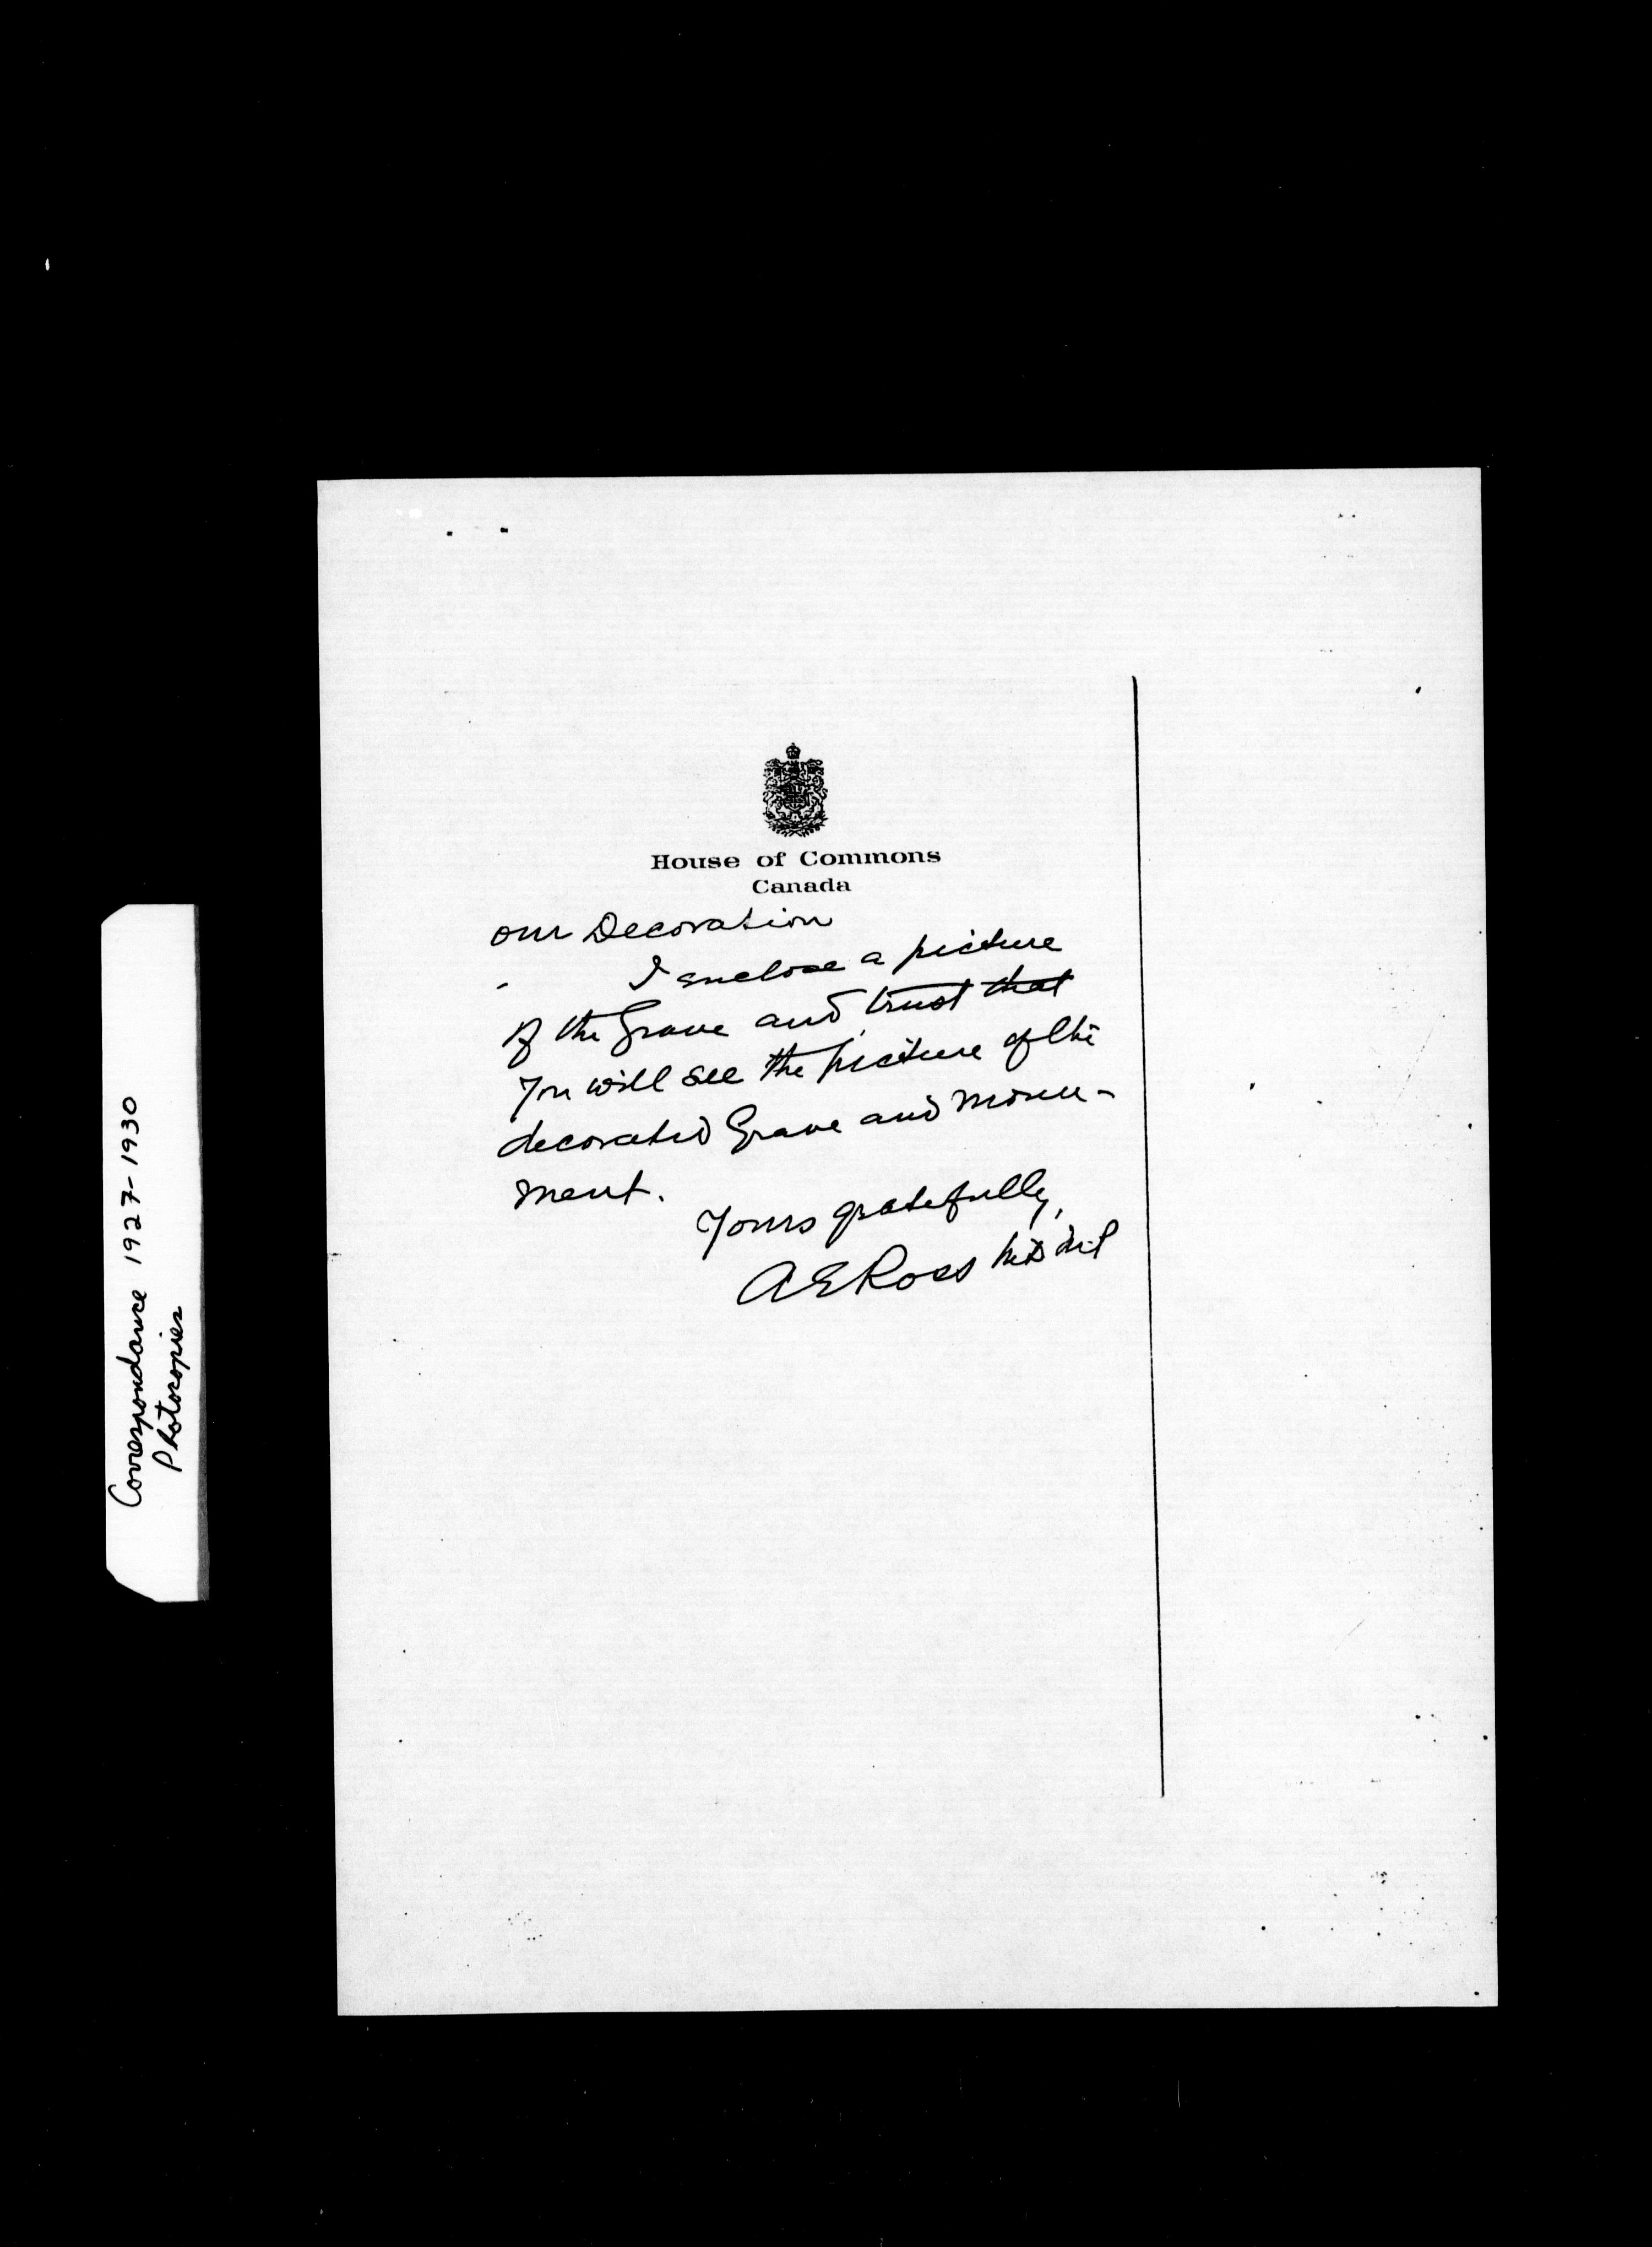 Correspondance 1927-1930
Photocopies
House of Commons
Canada
our Decoration
- I enclose a picture
of the Grave and trust that
you will see the picture of the
decorated Grave and monu-
ment.
Yours gratefully,
A E Ross